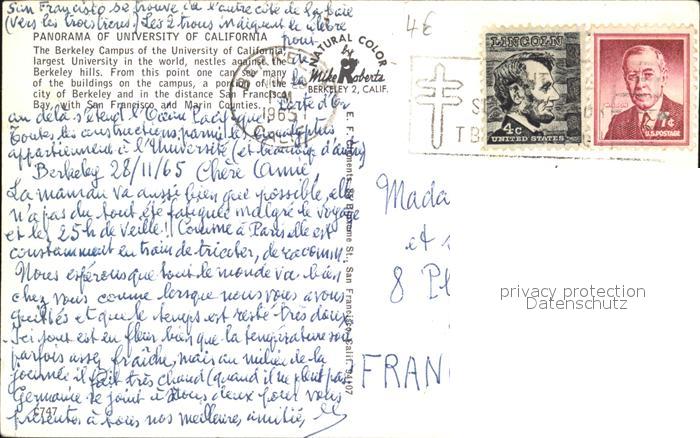 San Francisco se trouve de l'autre côté de la baie
(vers les trois tiers) Les 2 trous indiquent le célèbre
pont
PANORAMA OF UNIVERSITY OF CALIFORNIA
The Berkeley Campus of the University of California,
largest University in the world, nestles against the
Berkeley hills. From this point one can see many
of the buildings on the campus, a portion of the
city of Berkeley and in the distance San Francisco
Bay, with San Francisco and Marin Counties.
de
la
Porte d'Or
au delà s'étend l'Océan Pacifique
Toutes les constructions parmi les
appartiennent à l'Université (et beaucoup d'autres)
Berkeley 28/11/65 Chère Annie,
La maman va aussi bien que possible, elle
n'a pas du tout été fatiguée malgré le voyage
et les 25h de veille!! Comme à Paris elle est
constamment en train de tricoter, de raccomm.
Nous espérons que tout le monde va bien
chez vous comme lorsque nous vous avons
quittés et que le temps est resté très doux.
Ici tout est en fleur bien que la température soit
parfois assez fraîche, mais au milieu de la
journée il fait très chaud (quand il ne pleut pas)
Germaine se joint à nous deux pour vous
présenter à tous nos meilleures amitiés
C747
NATURAL COLOR
by
Mike Roberts
BERKELEY 2, CALIF.
BERKELEY
1965
CALIF
San Francisco, Calif. 94107
4€
LINCOLN
4c
UNITED STATES
7c
U.S. POSTAGE
TB
Mada
et
8 Pl
FRAN
privacy protection
Datenschutz